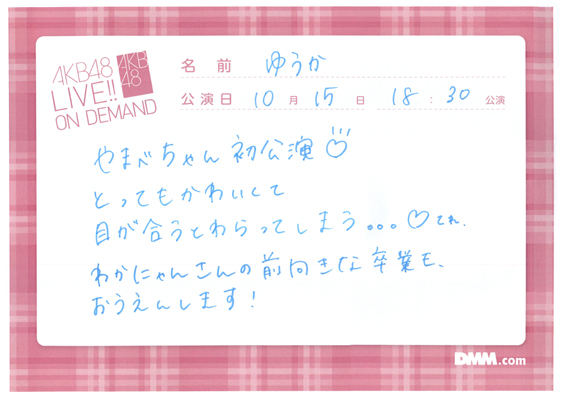 AKB48
LIVE!!
ON DEMAND
AKB
48
名前 ゆうか
公演日 10月15日 18:30公演
やまべちゃん初公演♡
とってもかわいくて
目が合うとわらってしまう。。。♡てれ、
わかにゃんさんの前向きな卒業も、
おうえんします！
DMM.com